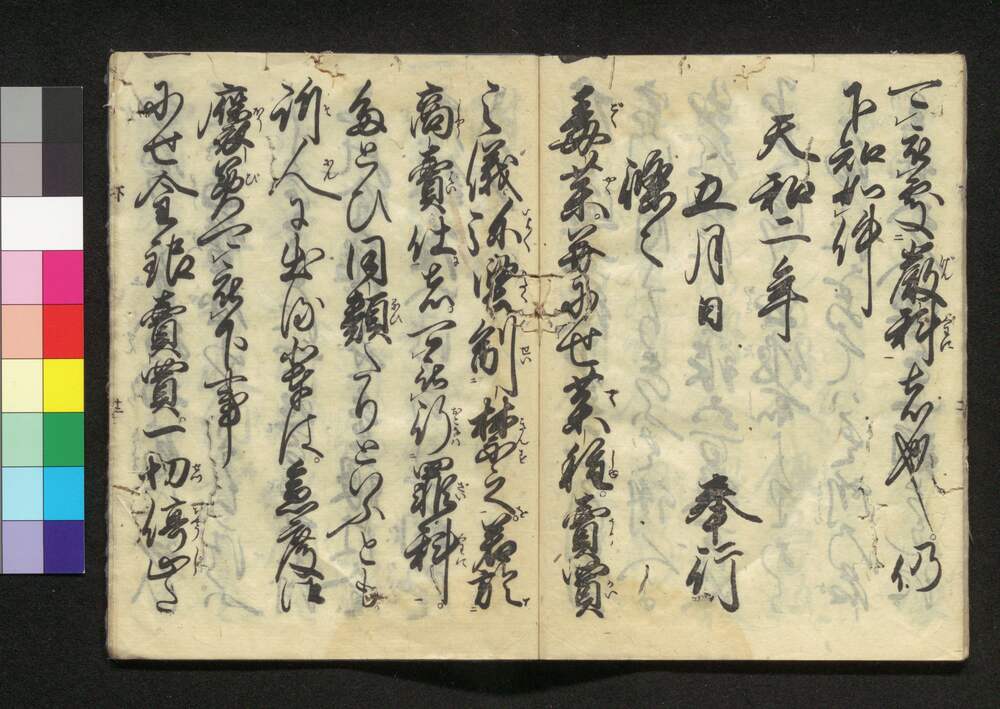 可被處嚴科者也仍
下知如件
天和二年
五月日　奉行
條々
毒薬并にせ薬種賣買
之儀弥堅制禁之若於
商賣仕者可被行罪科
たとひ同類たりといふとも
訴人に出る輩は急度御
褒美可被下事
にせ金銀賣買一切停止た